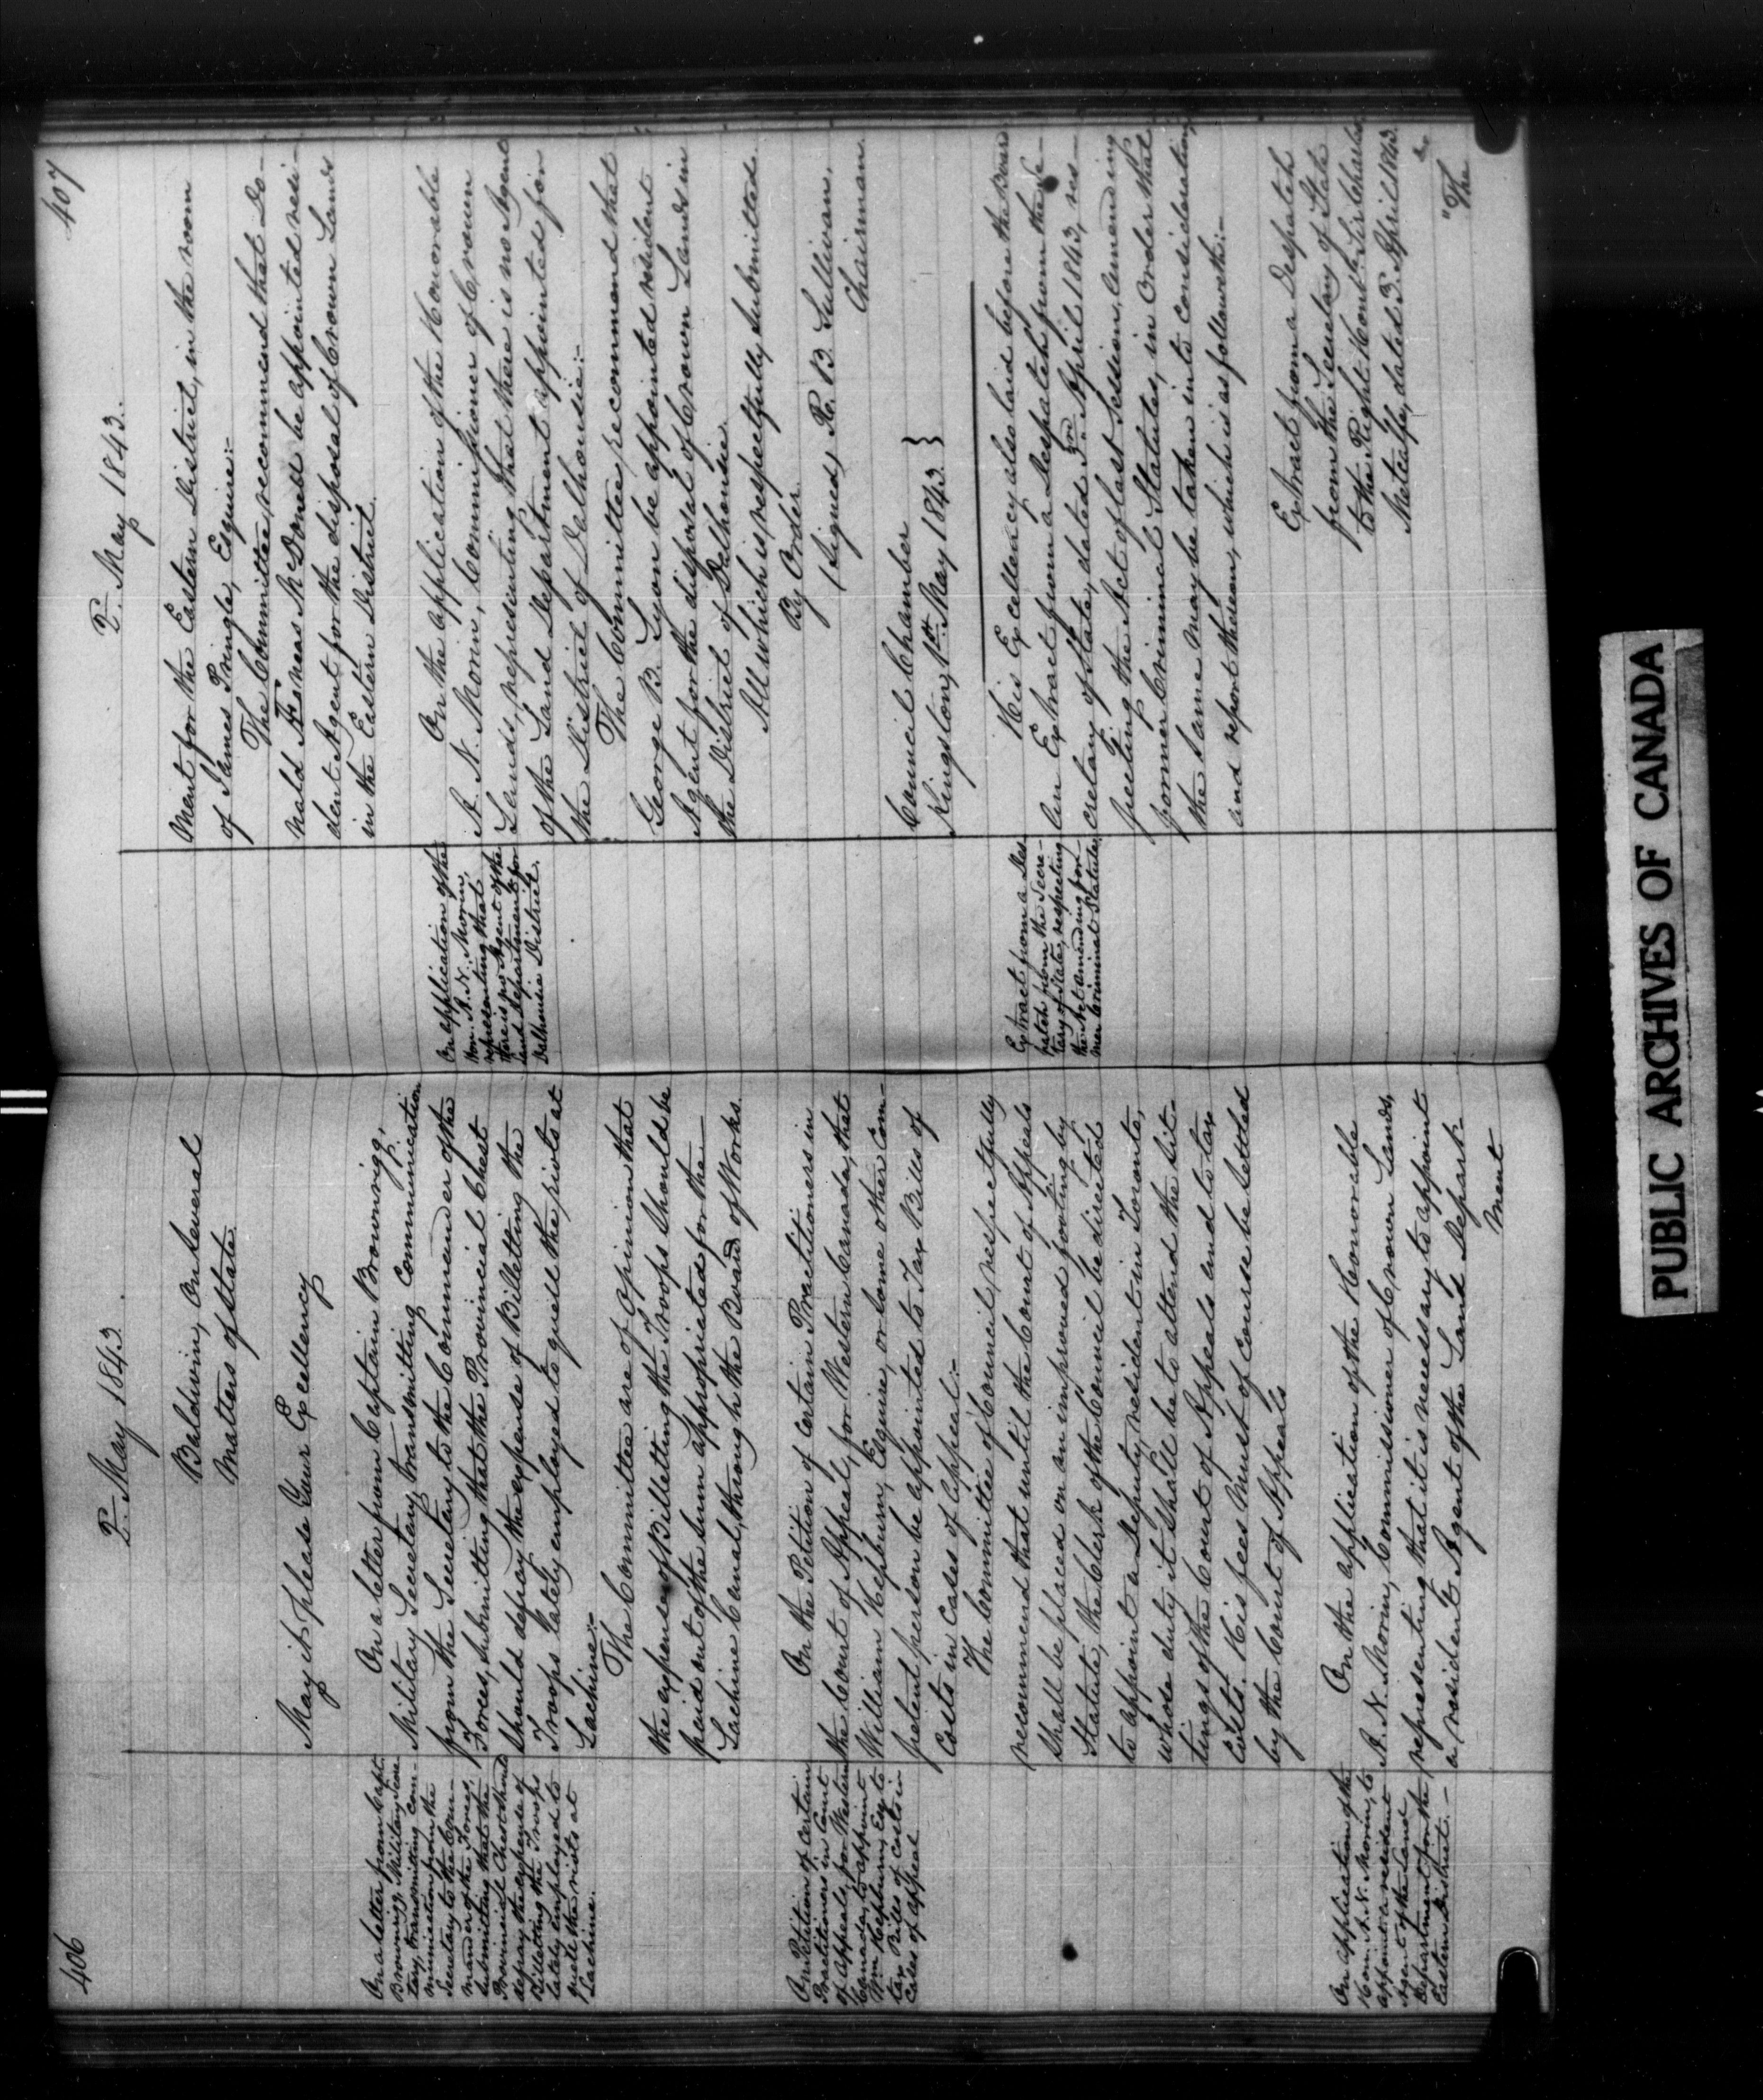 406
2. May 1843.
Baldwin, On Several
Matters of State.
May it please Your Excellency
On a letter from Capt.
Brownrigg, Military Secre
tary, transmitting com-
munication from the
Secretary to the Com-
mander of the Forces,
submitting that the
Provincial Chest should
defray the expense of
Billetting the Troops
lately employed to
quell the riots at
Lachine.
On a letter from Captain Brownrigg,
Military Secretary, transmitting Communication
from the Secretary to the Commander of the
Forces, submitting that the Provincial Chest
should defray the expense of Billetting the
Troops lately employed to quell the riots at
Lachine:-
The Committee are of Opinion that
the expense of Billetting the Troops should be
paid out of the sum appropriated for the
Lachine Canal, through the Board of Works.
On Petition of certain
Practitioners in Court
of Appeals, for Western
Canada, to appoint
Wm. Hepburn, Esq. to
tax Bills of Costs in
Cases of Appeal
On the Petition of certain Practitioners in
the Court of Appeal, for Western Canada, that
William Hepburn, Esquire, or some other com-
petent person be appointed to Tax Bills of
Costs in Cases of Appeal:-
The Committee of Council, respectfully
recommend that until the Court of Appeals
shall be placed on an improved footing by
Statute, the Clerk of the Council be directed
to appoint a Deputy, resident in Toronto,
whose duty it shall be to attend the sit-
tings of the Court of Appeals and to tax
Costs. His fees must of course be settled
by the Court of Appeals
On application of the
Hon. A. N. Morin, to
appoint a resident
Agent of the Land
Department for the
Eastern District.-
On the application of the Honorable
A. N. Morin, Commissioner of Crown Lands,
representing that it is necessary to appoint
a resident Agent of the Land Depart-
ment
407
2. May 1843.
ment for the Eastern District, in the room
of James Pringle, Esquire:-
The Committee, recommend that Do-
nald Æneas McDonell be appointed resi-
dent Agent for the disposal of Crown Lands
in the Eastern District.
On application of the
Hon. A. N. Morin,
representing that
there is no Agent of the
Land Department for
Dalhousie District.
On the application of the Honorable
A. N. Morin, Commissioner of Crown
Lands, representing that there is no Agent
of the Land Department appointed for
the District of Dalhousie:-
The Committee, recommend that
George B. Lyon be appointed resident
Agent for the disposal of Crown Lands in
the District of Dalhousie.
All which is respectfully submitted.
By Order.
(signed) R. B. Sullivan,
Chairman.
Council Chamber }
Kingston, 1st. May 1843. }
Extract from a Des
patch from the Secre-
tary of State, respecting
the Act amending for-
mer Criminal Statutes.
His Excellency also laid before the Board
an Extract from a Despatch from the Se-
cretary of State, dated 3rd April 1843, res-
pecting the Act of last Session, amending
former Criminal Statutes, in Order that
the same may be taken into consideration,
and report thereon, which is as followeth:-
Extract from a Despatch
from the Secretary of State
to the Right Honble. Sir Charles
Metcalfe, dated 3. April 1843.
"The
PUBLIC ARCHIVES OF CANADA